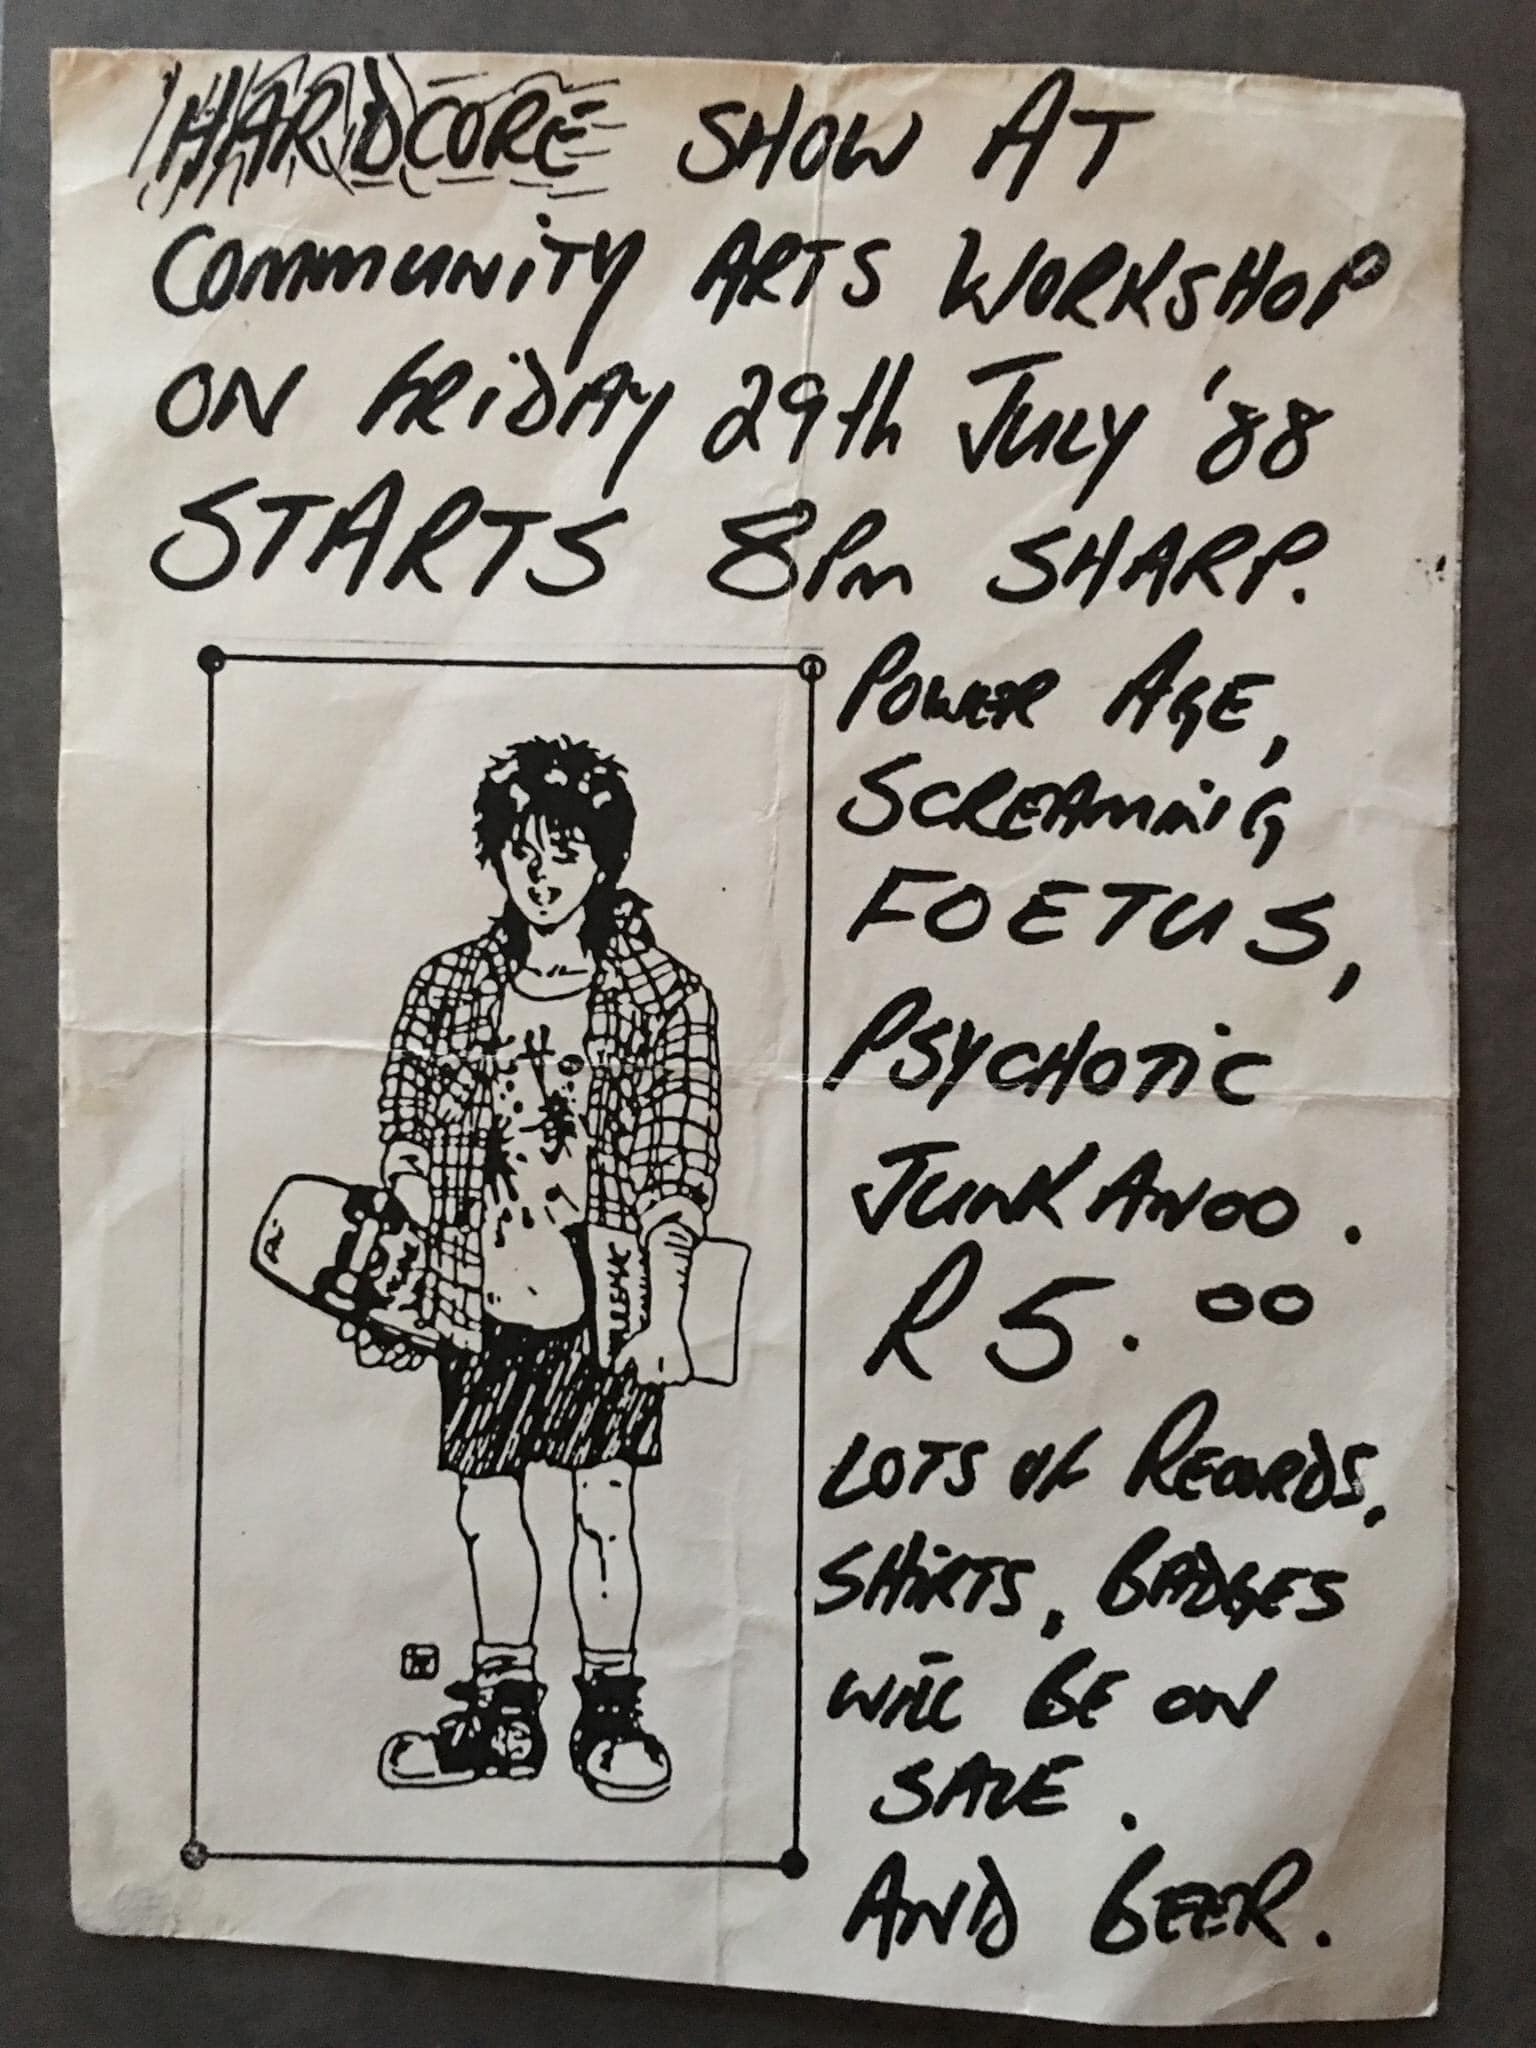 HARDCORE SHOW AT
COMMUNITY ARTS WORKSHOP
ON FRIDAY 29th JULY '88
STARTS 8PM SHARP.
POWER AGE,
SCREAMING
FOETUS,
PSYCHOTIC
JUNKANOO.
R5.00
LOTS OF RECORDS,
SHIRTS, BADGES
WILL BE ON
SALE.
AND BEER.